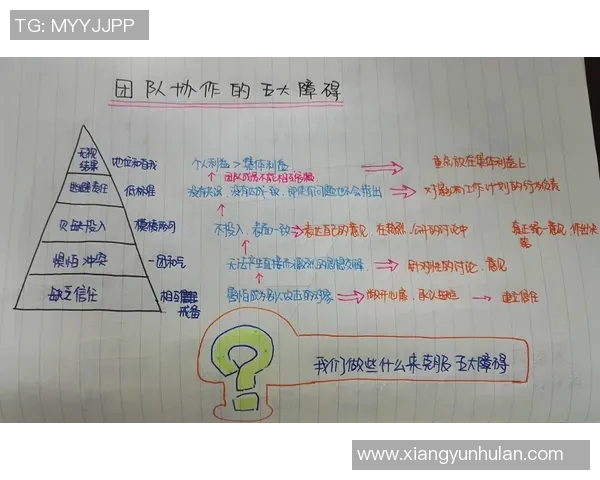 TG: MYYJJPP
团队协作的五大障碍
无视结果 地位和自我 个人利益 > 集体利益 重点放在集体利益上
团队成员不能相互
逃避责任 低标准 没有共识、没有达成一致，即使有问题也不会指出 对影响工作计划的行为负责
欠缺投入 模棱两可 不投入，表面一致 表达自己的意见，在 公开的讨论中 真正统一意见，作出决策
惧怕冲突 一团和气 无法产生直接而激烈的思想交锋 针对性的讨论，意见
缺乏信任 相互戒备 害怕成为别人攻击的对象 敞开心扉，承认缺点 建立信任
我们做些什么来克服五大障碍
www.xiangyunhulan.com